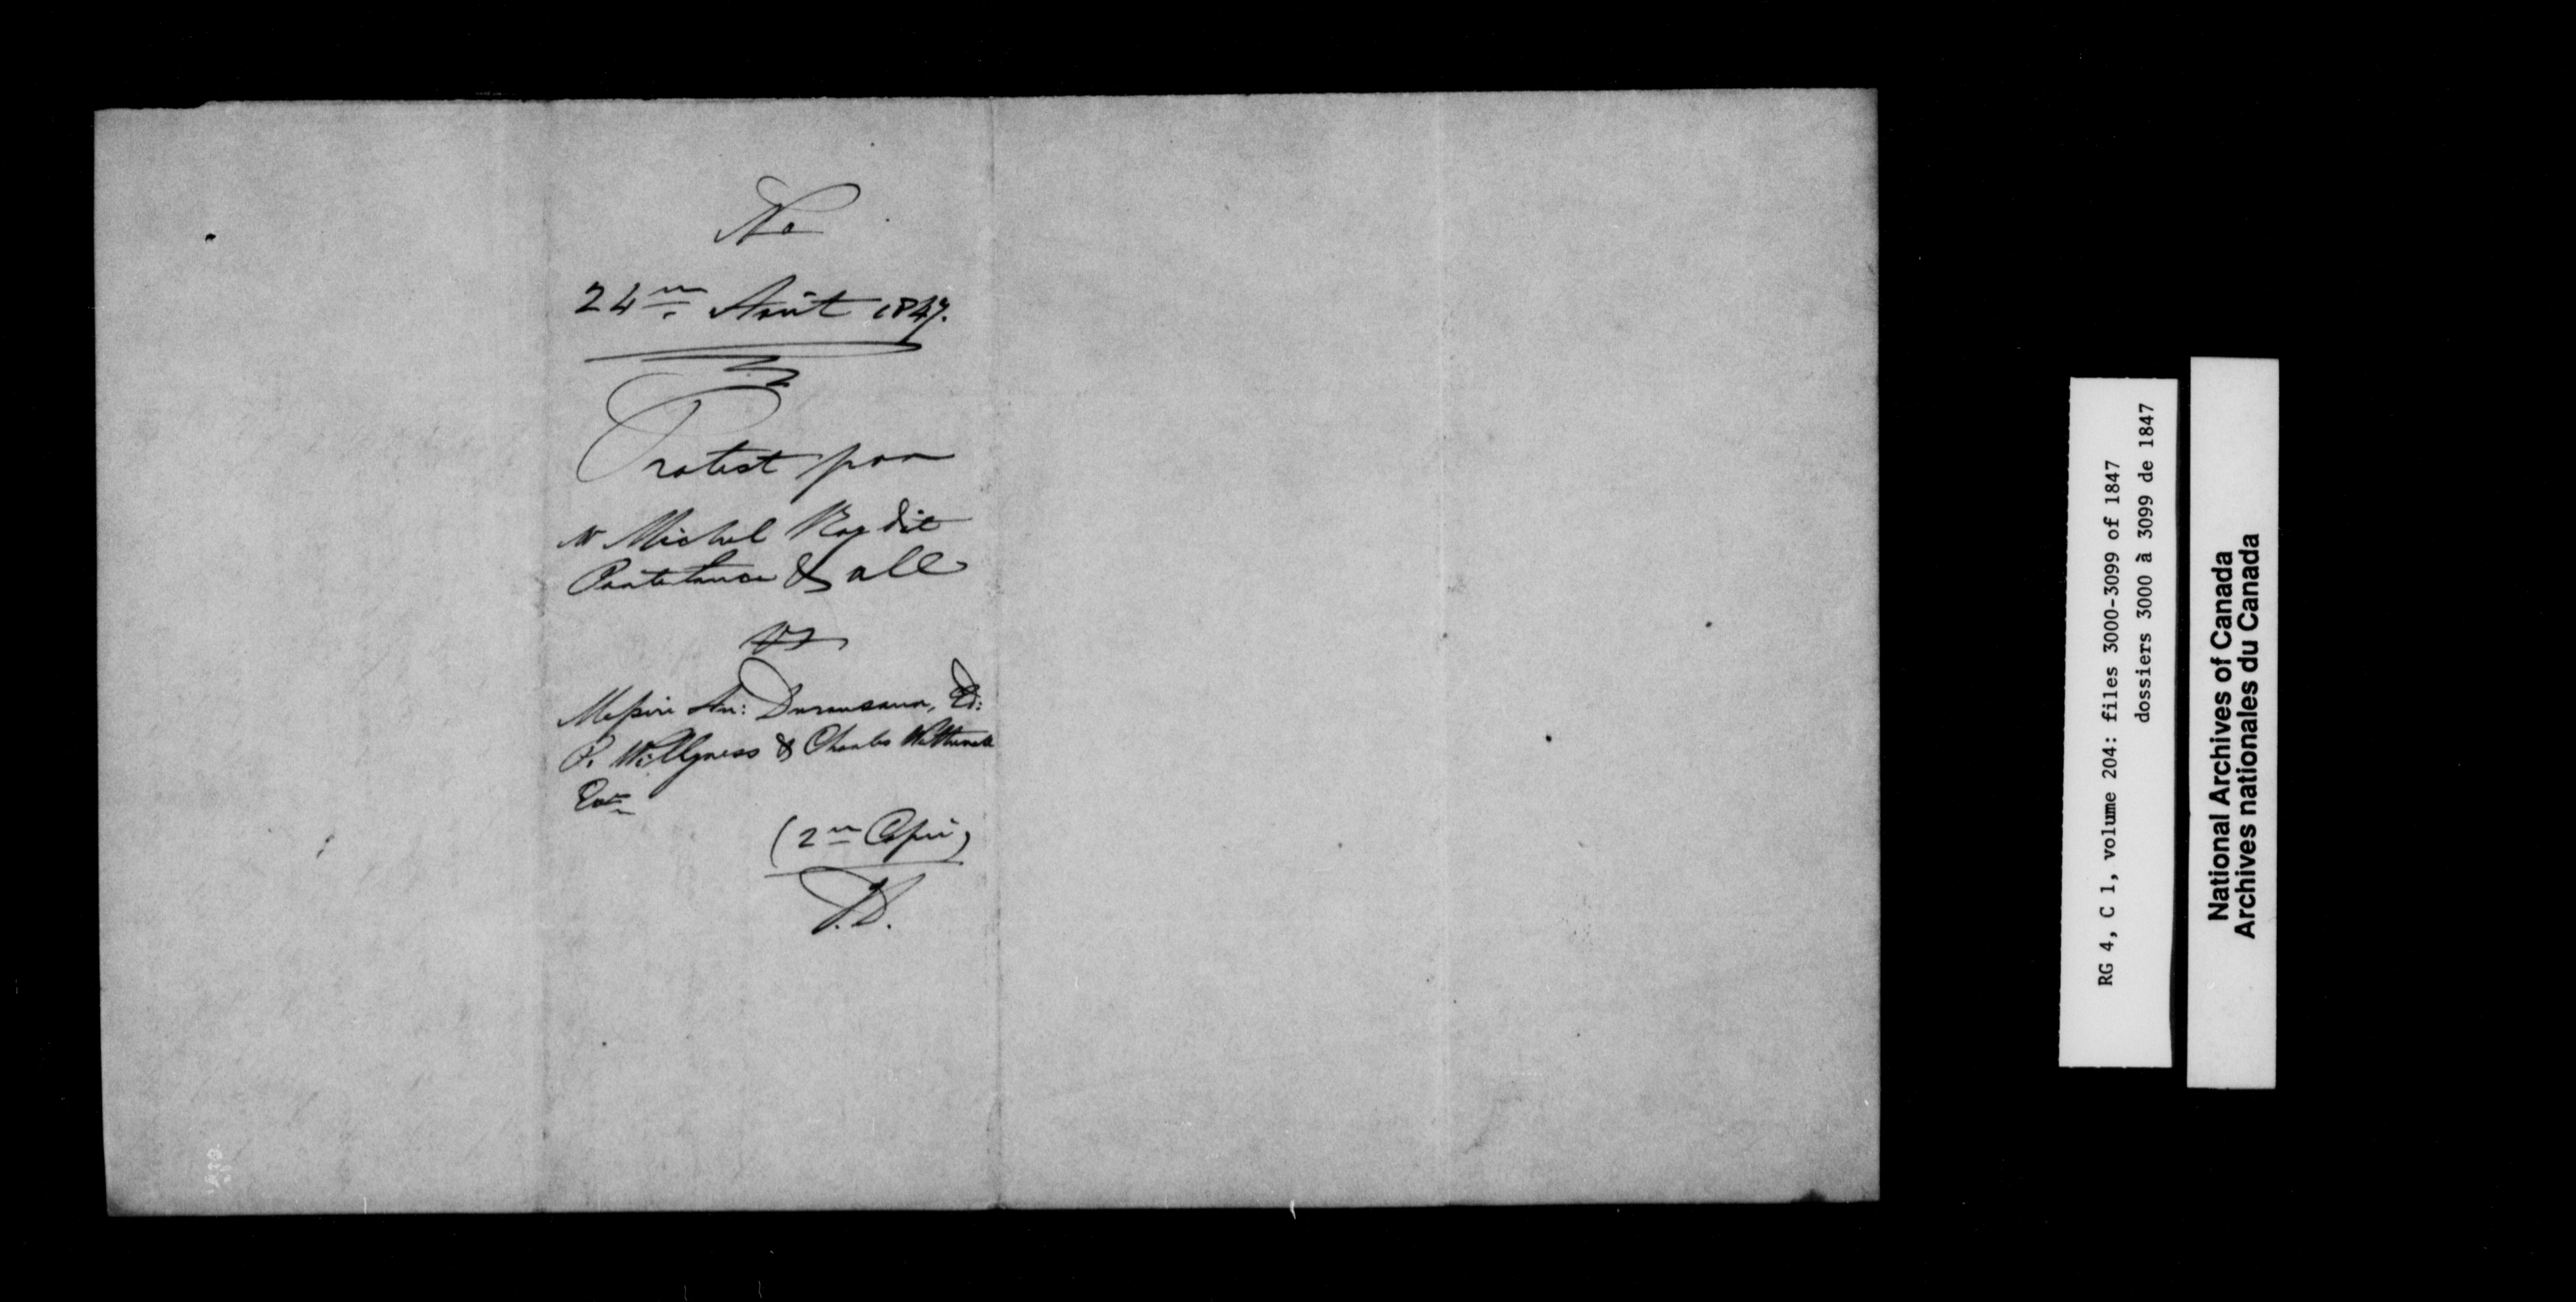 No
24me Août 1847.
Protest par
Mr Michel Roy dit
& all
vs
Messire An: Ed:
P. & Charles
(2me Copie)
RG 4, C 1, volume 204: files 3000-3099 of 1847
dossiers 3000 à 3099 de 1847
National Archives of Canada
Archives nationales du Canada